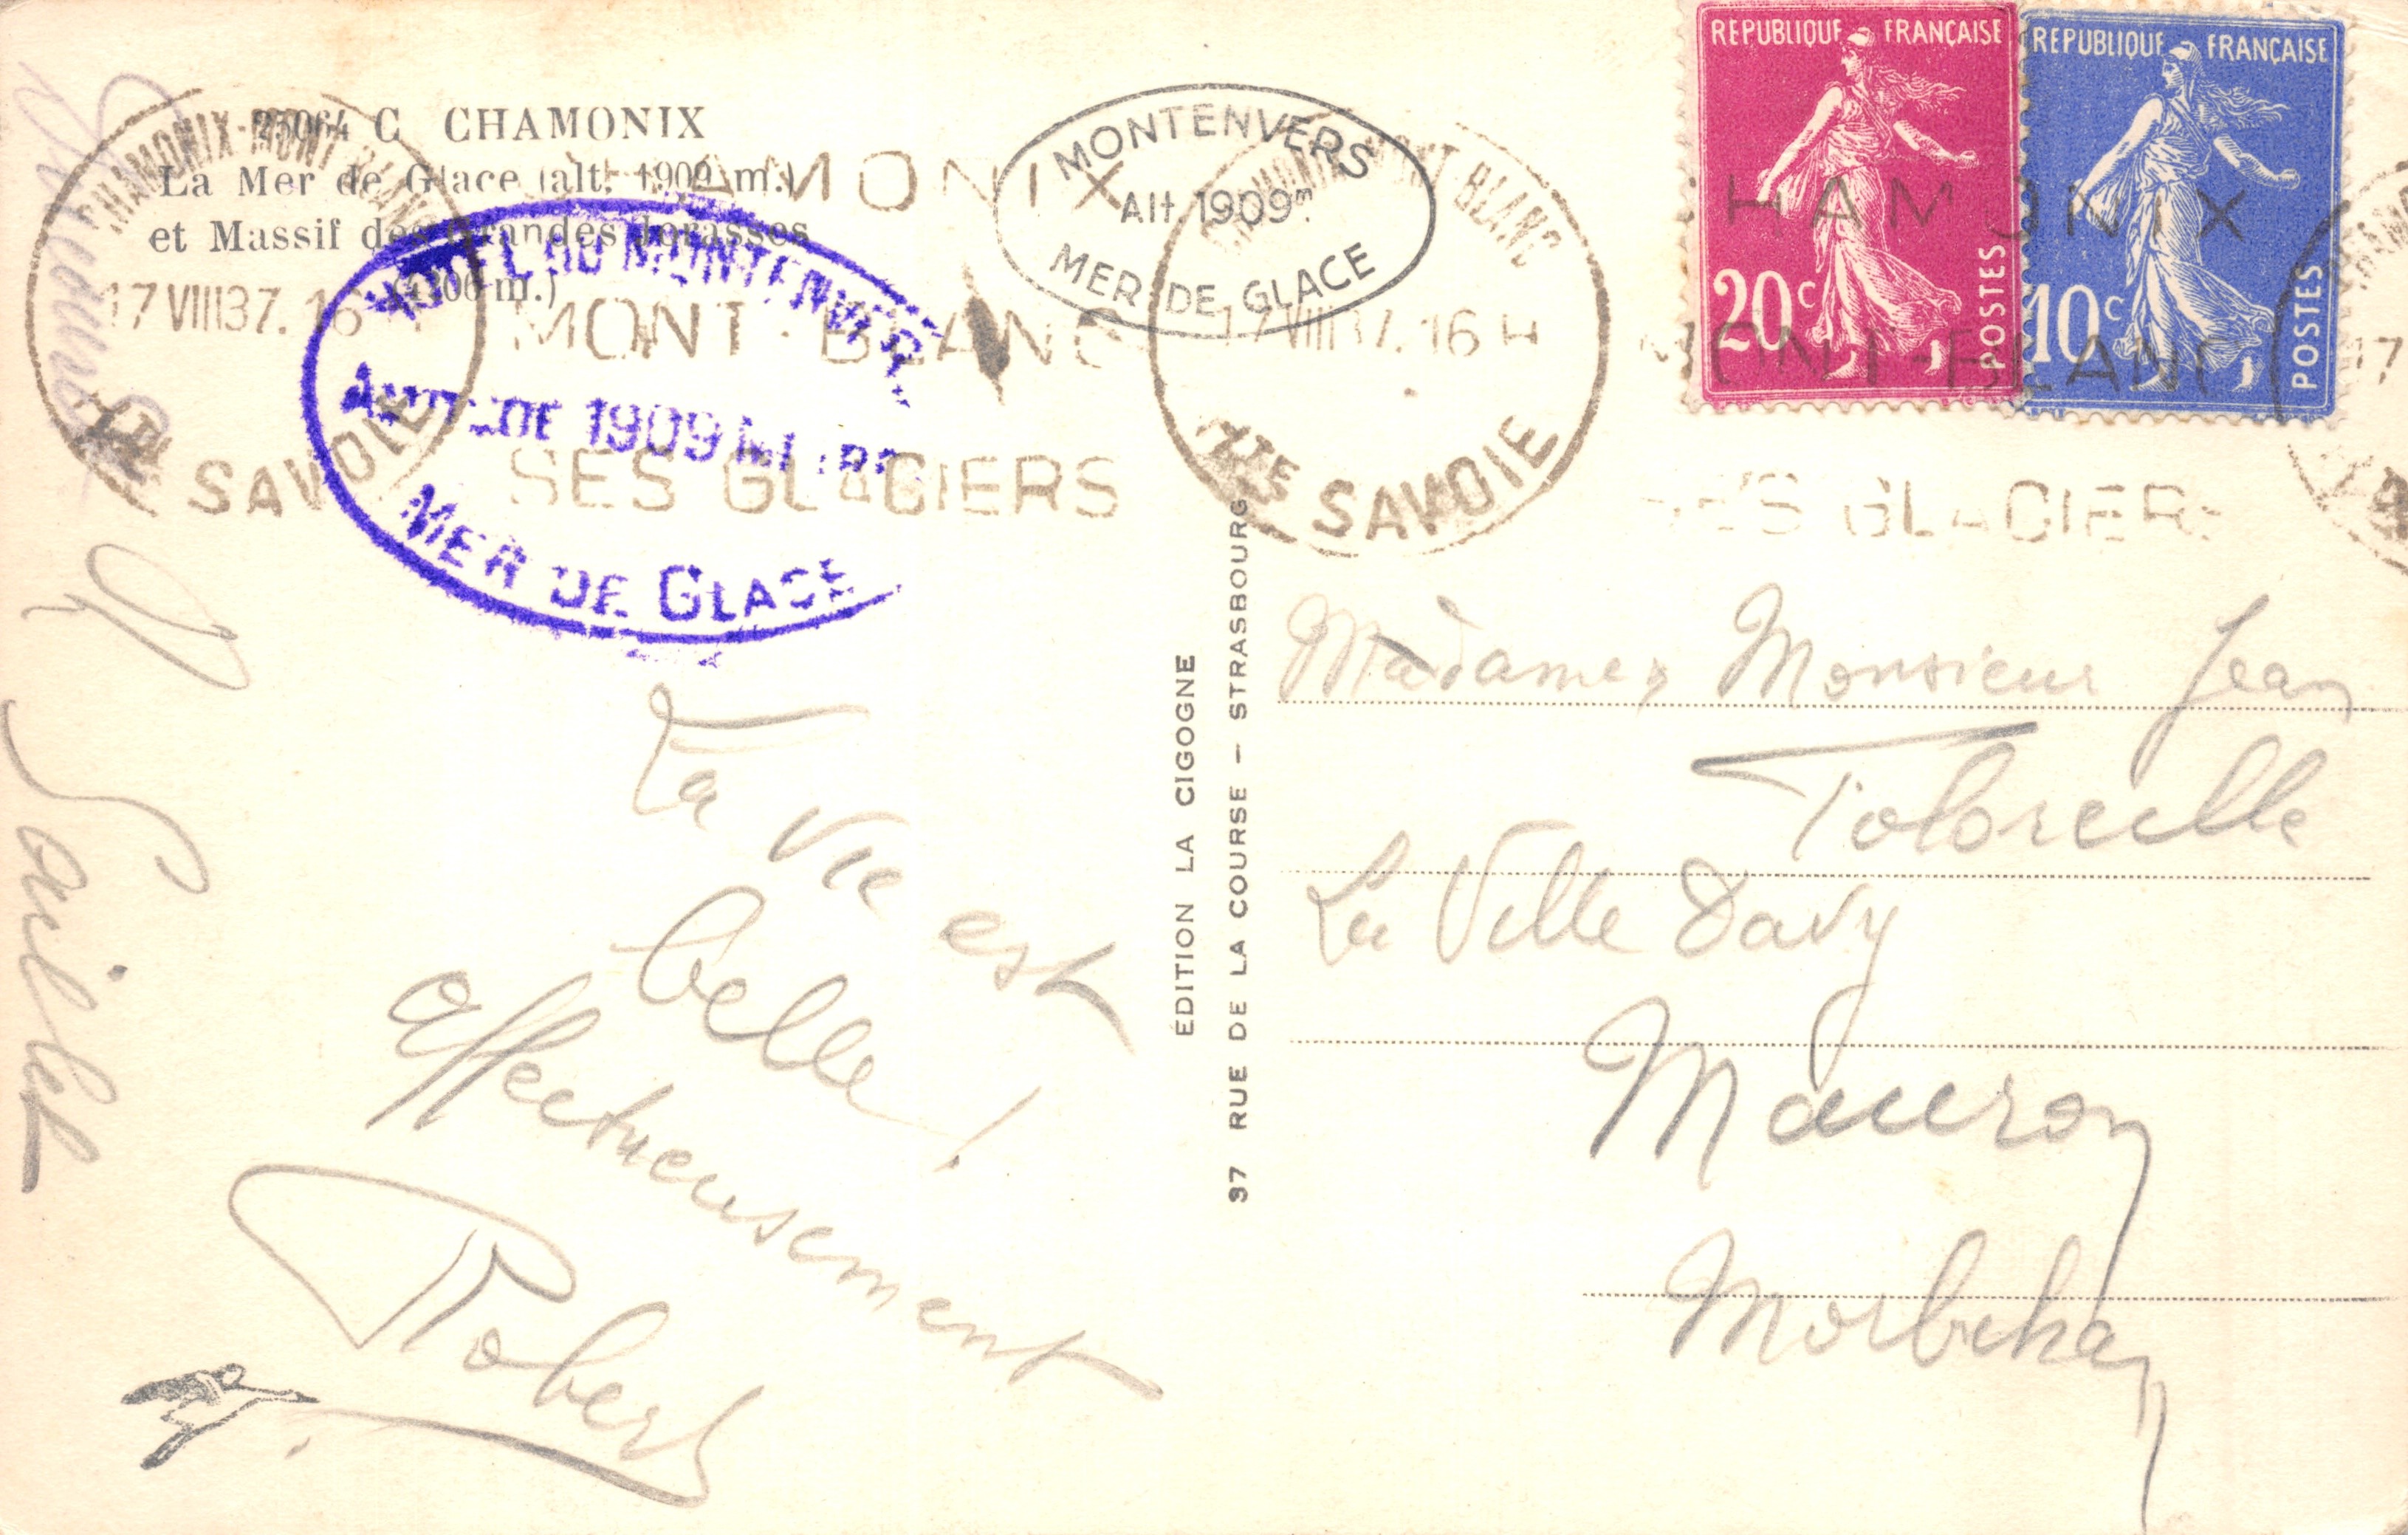 25064 C CHAMONIX
La Mer de Glace (alt. 1909 m.)
et Massif des Grandes Jorasses
(4206 m.)
CHAMONIX-MONT-BLANC
17 VIII 37. 16 H
HTE SAVOIE
CHAMONIX
MONT-BLANC
SES GLACIERS
HOTEL DU MONTENVERS
ALTITUDE 1909 METRES
MER DE GLACE
MONTENVERS
Alt. 1909m
MER DE GLACE
CHAMONIX MONT-BLANC
17 VIII 37. 16 H
HTE SAVOIE
REPUBLIQUE FRANÇAISE
20c
POSTES
REPUBLIQUE FRANÇAISE
10c
POSTES
CHAMONIX
MONT-BLANC
SES GLACIERS
17
La vie est
belle !
affectueusement
Robert
ÉDITION LA CIGOGNE
37 RUE DE LA COURSE - STRASBOURG
Madame Monsieur Jean
La Ville Davy
Mauron
Morbihan